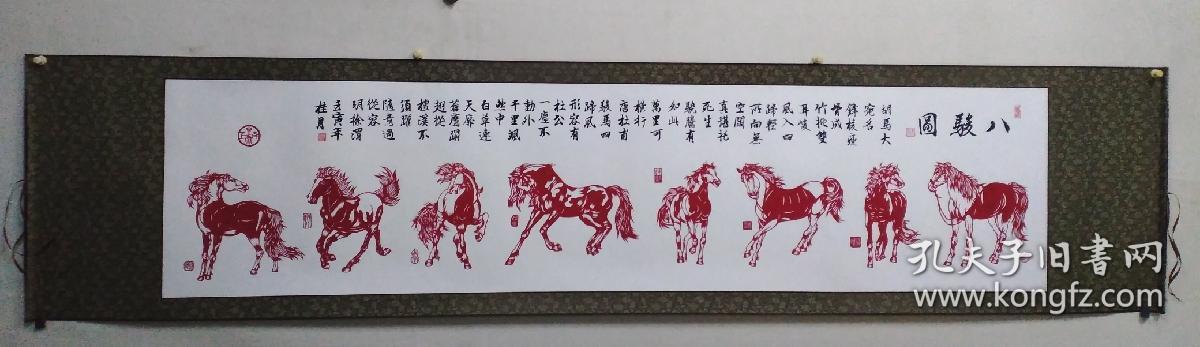 八駿圖
胡馬大
宛名
鋒棱瘦
骨成
竹批雙
耳峻
風入四
蹄輕
所向無
空闊
真堪託
死生
驍騰有
如此
萬里可
橫行
唐杜甫
駿馬四
蹄風
形容有
杜公
一塵不
動外
千里颯
然中
白草連
天靡
蒼鷹躍
趁從
櫻溪不
須躍
隨意過
從容
明徐渭
桂月
孔夫子旧书网
www.kongfz.com